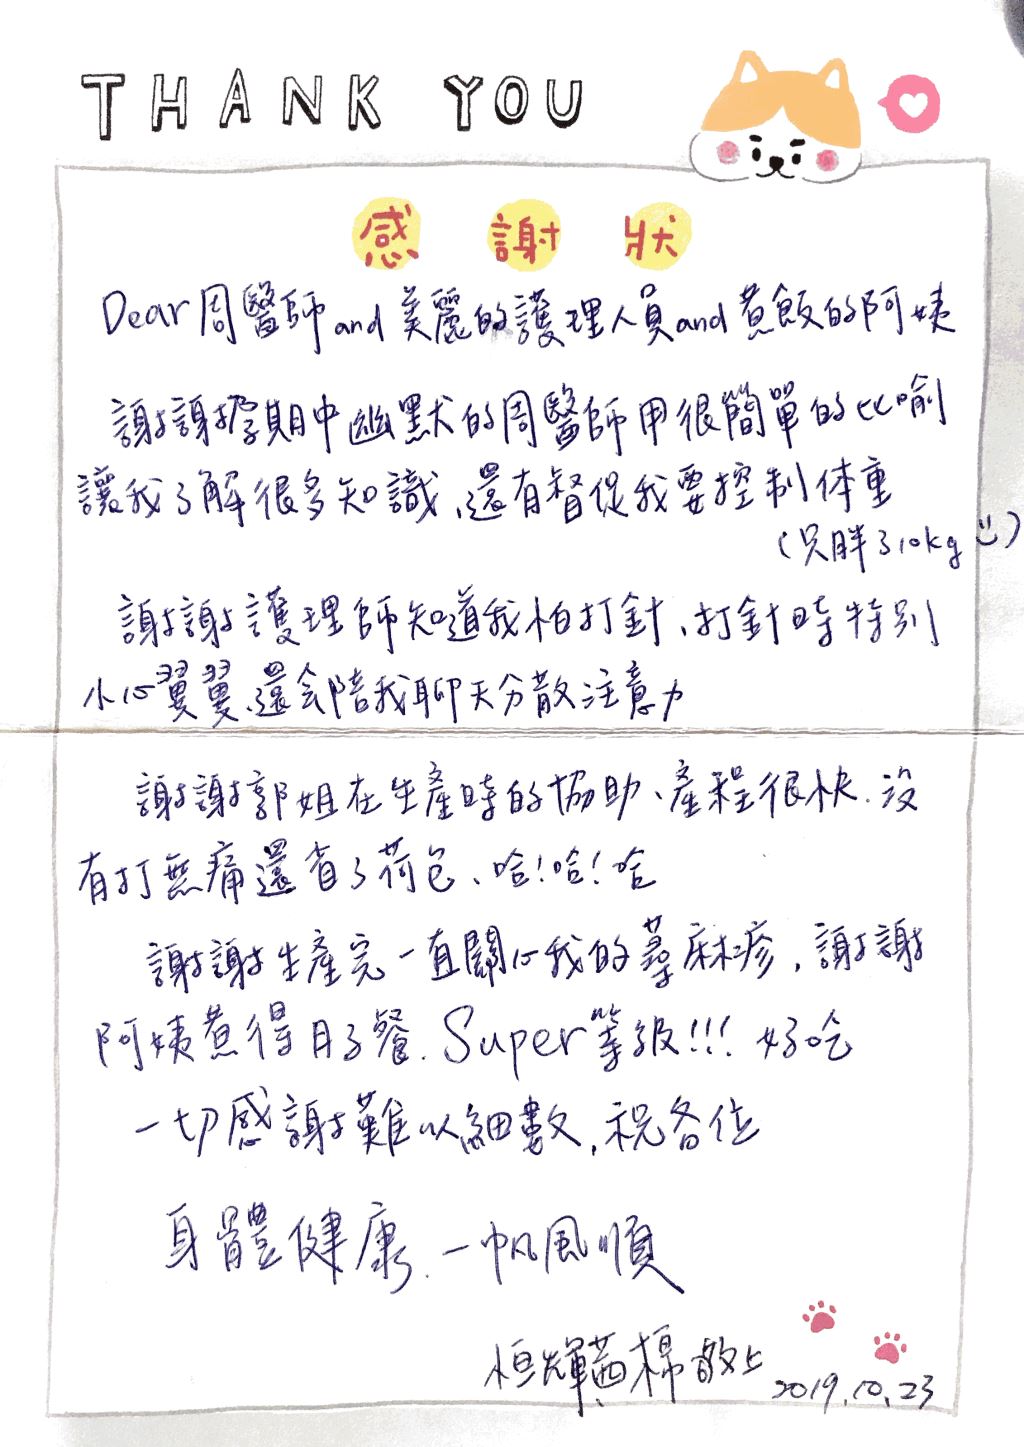 THANK YOU
感謝狀
Dear周醫師and美麗的護理人員and煮飯的阿姨
謝謝孕期中幽默的周醫師用很簡單的比喻
讓我了解很多知識、還有督促我要控制体重
(只胖了10kg )
謝謝護理師知道我怕打針、打針時特別
小心翼翼、還会陪我聊天分散注意力
謝謝郭姐在生產時的協助、產程很快.沒
有打無痛還省了荷包、哈!哈!哈
謝謝生產完一直關心我的蕁麻疹,謝謝
阿姨煮得月子餐.Super等級!!!好吃
一切感謝難以細數,祝各位
身體健康.一帆風順
恒輝 棉敬上
2019.10.23